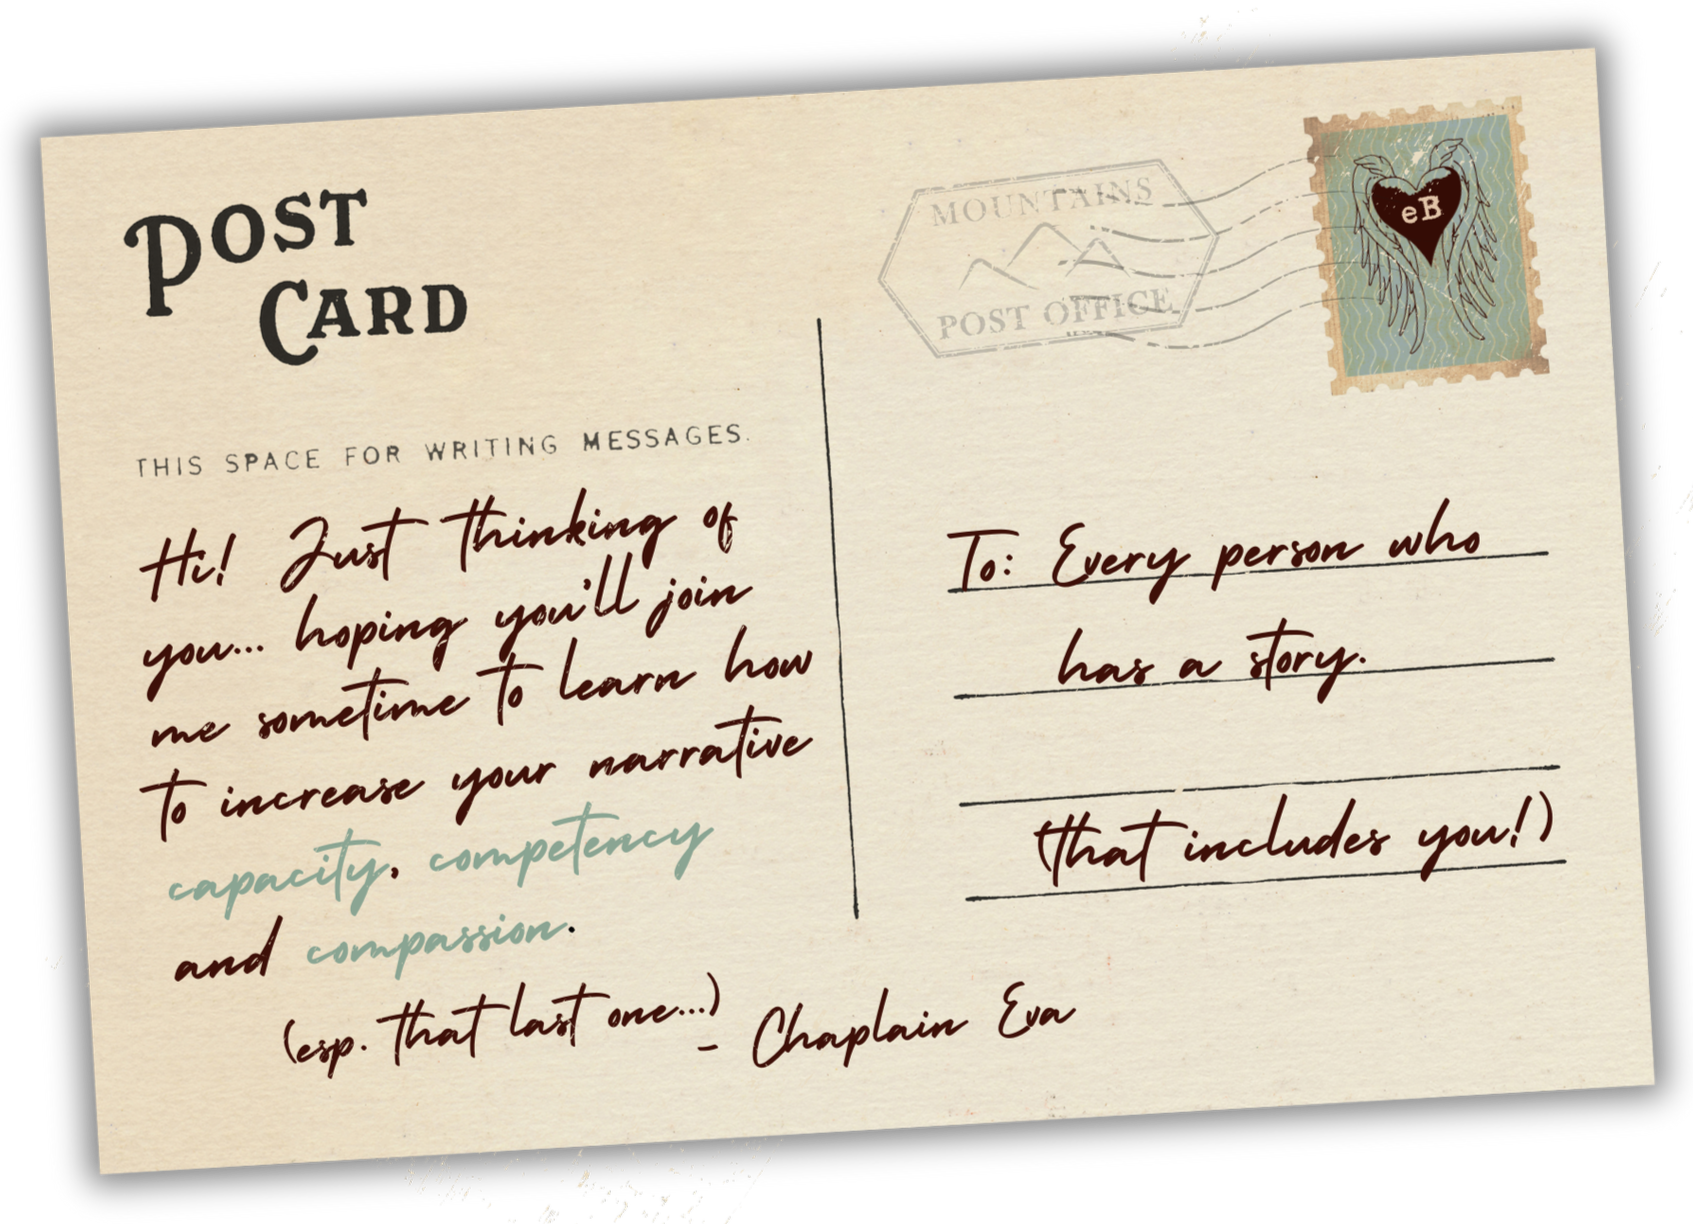 POST
CARD
MOUNTAINS
POST OFFICE
eB
THIS SPACE FOR WRITING MESSAGES.
Hi! Just thinking of
you... hoping you'll join
me sometime to learn how
to increase your narrative
capacity, competency
and compassion.
(esp. that last one...)
- Chaplain Eva
To: Every person who
has a story.
(that includes you!)